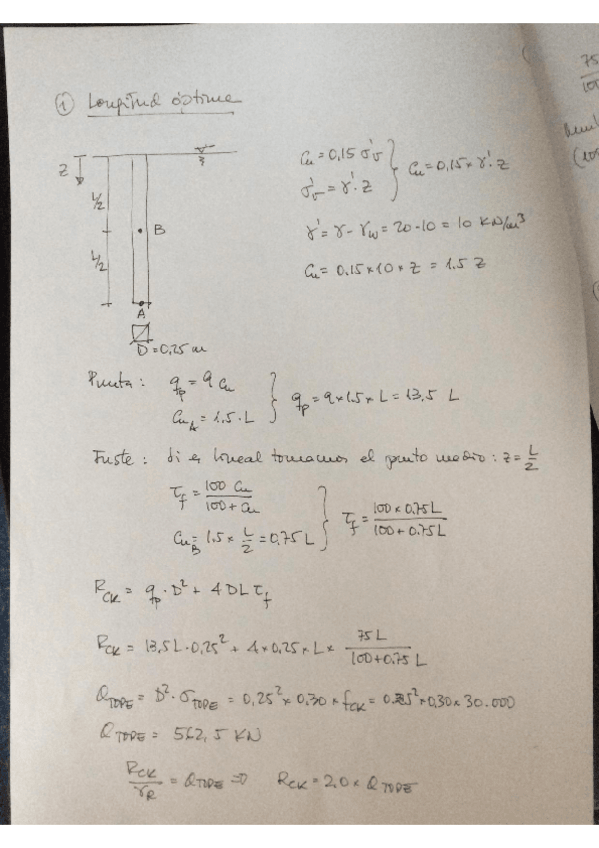 ① Longitud óptima
Cu = 0,15 σ'v
σ'v = γ'·z
Cu = 0,15 × γ'·z
z
L/2
B
L/2
A
D = 0,25 m
γ' = γ - γw = 20 - 10 = 10 KN/m³
Cu = 0.15 × 10 × z = 1.5 z
Punta: qp = 9 Cu
CuA = 1.5 · L
qp = 9 × 1.5 × L = 13,5 L
Fuste: si es lineal tomamos el punto medio: z = L/2
τf = 100 Cu / 100 + Cu
CuB = 1.5 × L/2 = 0.75 L
τf = 100 × 0.75 L / 100 + 0.75 L
RCK = qp · D² + 4 DL τf
RCK = 13,5 L · 0,25² + 4 × 0,25 × L × 75 L / 100 + 0,75 L
QTOPE = D² · σTOPE = 0,25² × 0,30 × fCK = 0.25² × 0,30 × 30.000
QTOPE = 562,5 KN
RCK / γR = QTOPE ⇒ RCK = 2,0 × QTOPE
75
100
(100